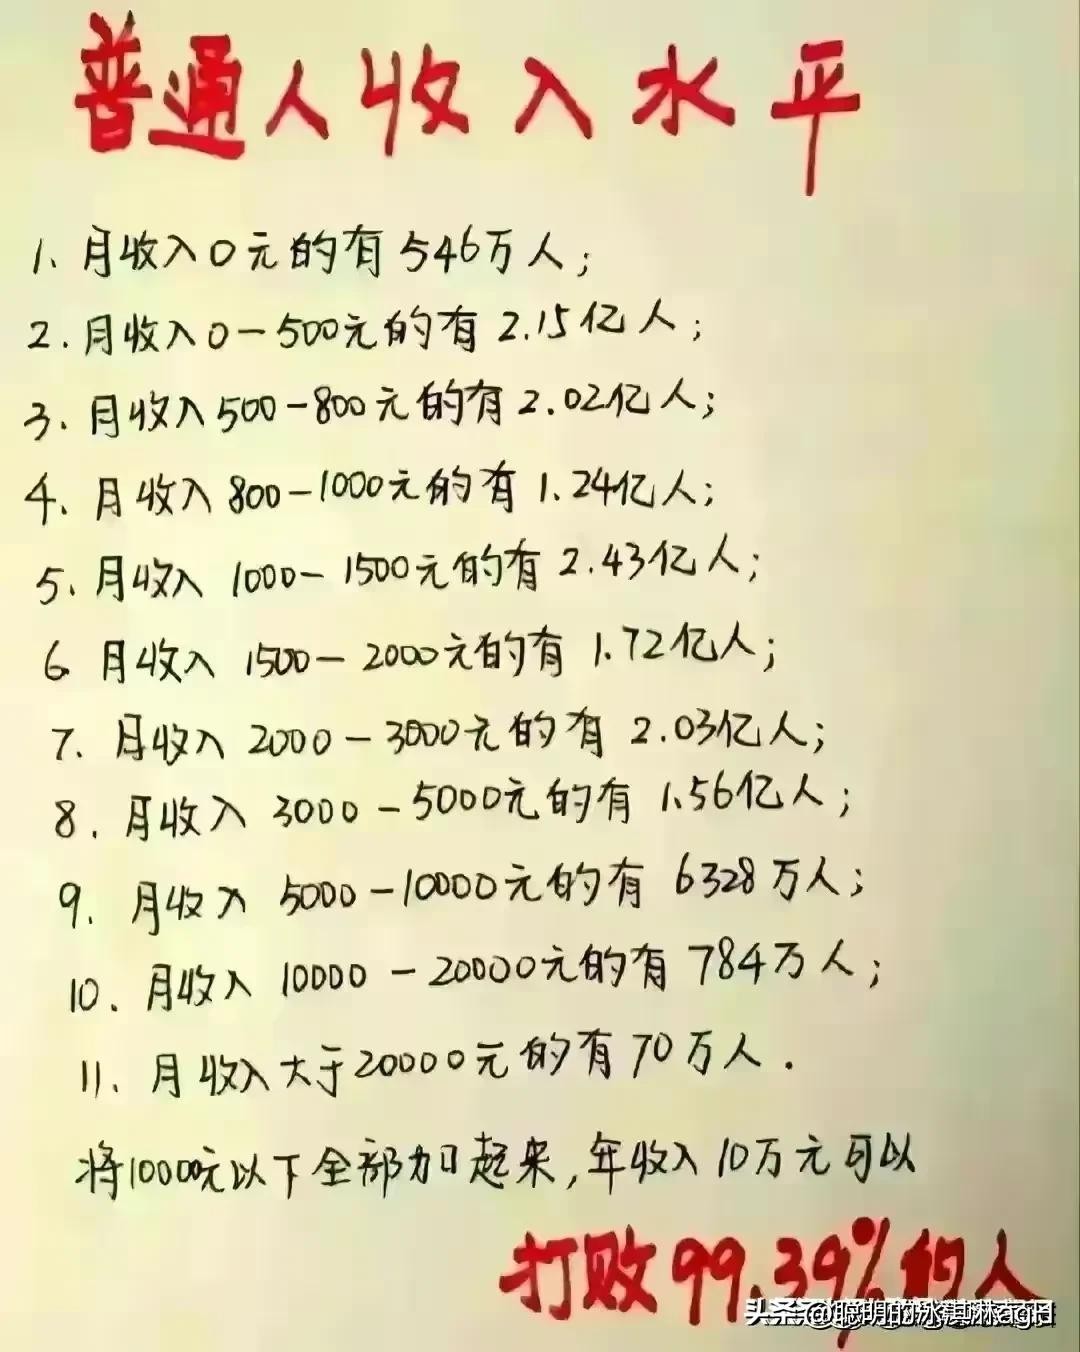 普通人收入水平
1、月收入0元的有546万人;
2.月收入0-500元的有2.15亿人;
3、月收入500-800元的有2.02亿人;
4、月收入800-1000元的有1.24亿人;
5、月收入1000-1500元的有2.43亿人;
6、月收入1500-2000元的有1.72亿人;
7、月收入2000-3000元的有2.03亿人;
8.月收入3000-5000元的有1.56亿人;
9、月收入5000-10000元的有6328万人;
10、月收入10000-20000元的有784万人;
11、月收入大于20000元的有70万人.
将10000元以下全部加起来,年收入10万元可以
打败99.39%的人
头条@聪明的冰淇淋